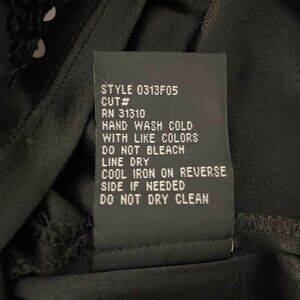 STYLE 0313F05
CUT#
RN 31310
HAND WASH COLD
WITH LIKE COLORS
DO NOT BLEACH
LINE DRY
COOL IRON ON REVERSE
SIDE IF NEEDED
DO NOT DRY CLEAN